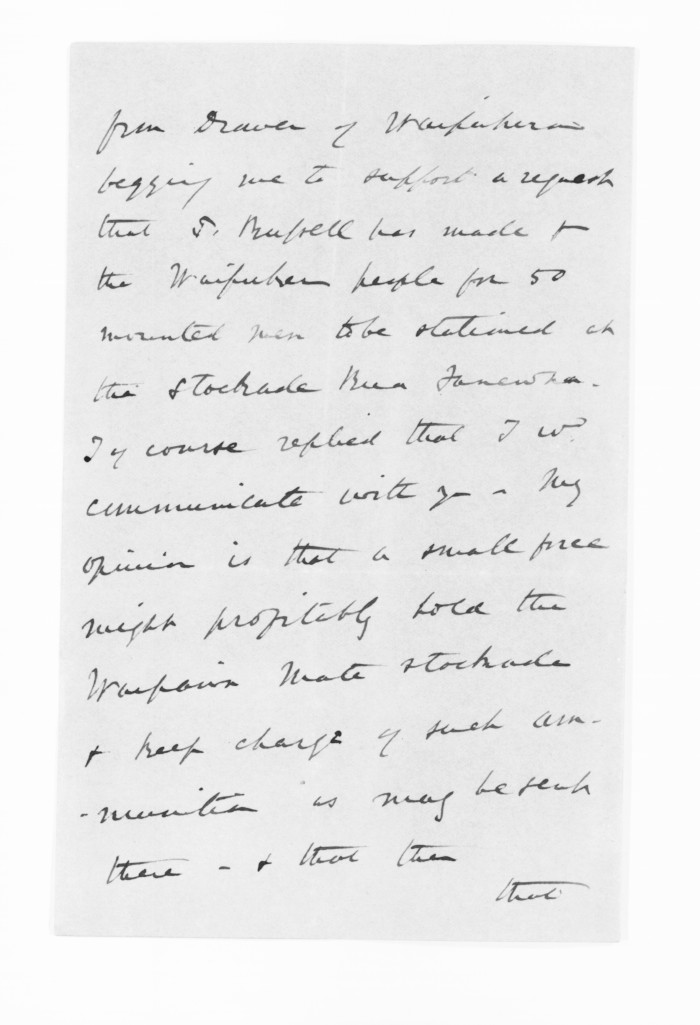 from Drower of Waipukurau
begging me to support a request
that J. Russell has made &
the Waipukurau people for 50
mounted men to be stationed at
the Stockade
I of course replied that I wd
communicate with you - My
opinion is that a small force
might profitably hold the
Waipawa Mate stockade
& keep charge of such am-
-munition as may be sent
there - & that the
that